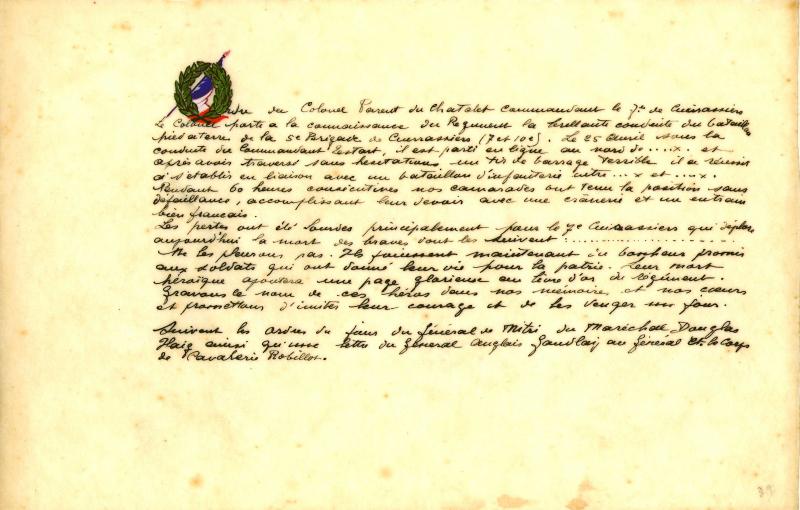 Ordre du Colonel Parent du Chatelet Commandant le 7e de Cuirassiers
Le Colonel porte a la connaissance du Régiment la brillante conduite du bataillon
pied a terre de la 5e Brigade de Cuirassiers (7 et 10e). Le 25 Avril sous la
conduite du Commandant Lestart, il est parti en ligne au nord de ...x. et
après avoir traversé sans hésitations un tir de barrage terrible il a réussi
à s'établir en liaison avec un bataillon d'infanterie entre ... x et ...x.
Pendant 60 heures consécutives nos camarades ont tenu la position sans
défaillance, accomplissant leur devoir avec une cranerie et un entrain
bien français.
Les pertes ont été lourdes principalement pour le 7e Cuirassiers qui déplore
aujourd'hui la mort des braves dont les suivent : ....................
Ne les pleurons pas. Ils jouissent maintenant du bonheur promis
aux soldats qui ont donné leur vie pour la patrie. Leur mort
héroïque ajoutera une page glorieuse au livre d'or du régiment.
Gravons le nom de ces héros dans nos mémoires et nos cœurs
et promettons d'imiter leur courage et de les venger un jour.
Suivent les ordres du jour du Général de Mitri du Maréchal Douglas
Haig ainsi qu'une lettre du Général Anglais au Général Ct. le Corps
de Cavalerie Robillot.
39